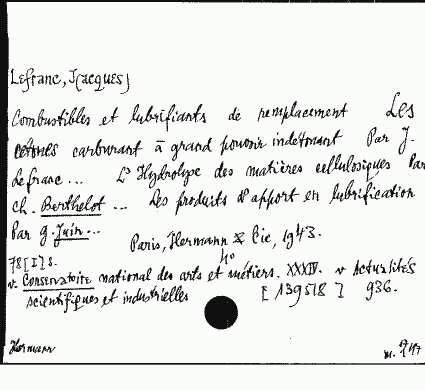 Lefranc, J(acques)
Combustibles et lubrifiants de remplacement Les
cetones carburant à grand pouvoir indétonant Par J.
Lefranc... L'Hydrolyse des matières cellulosiques Par
Ch. Berthelot ... Les produits d'apport en lubrification
Par G. Juin...
Paris, Hermann & Cie, 1943.
4°
78 [I] s.
v. Conservatoire national des arts et métiers. XXXIV. v Actualités
scientifiques et industrielles [139518] 936.
Hermann